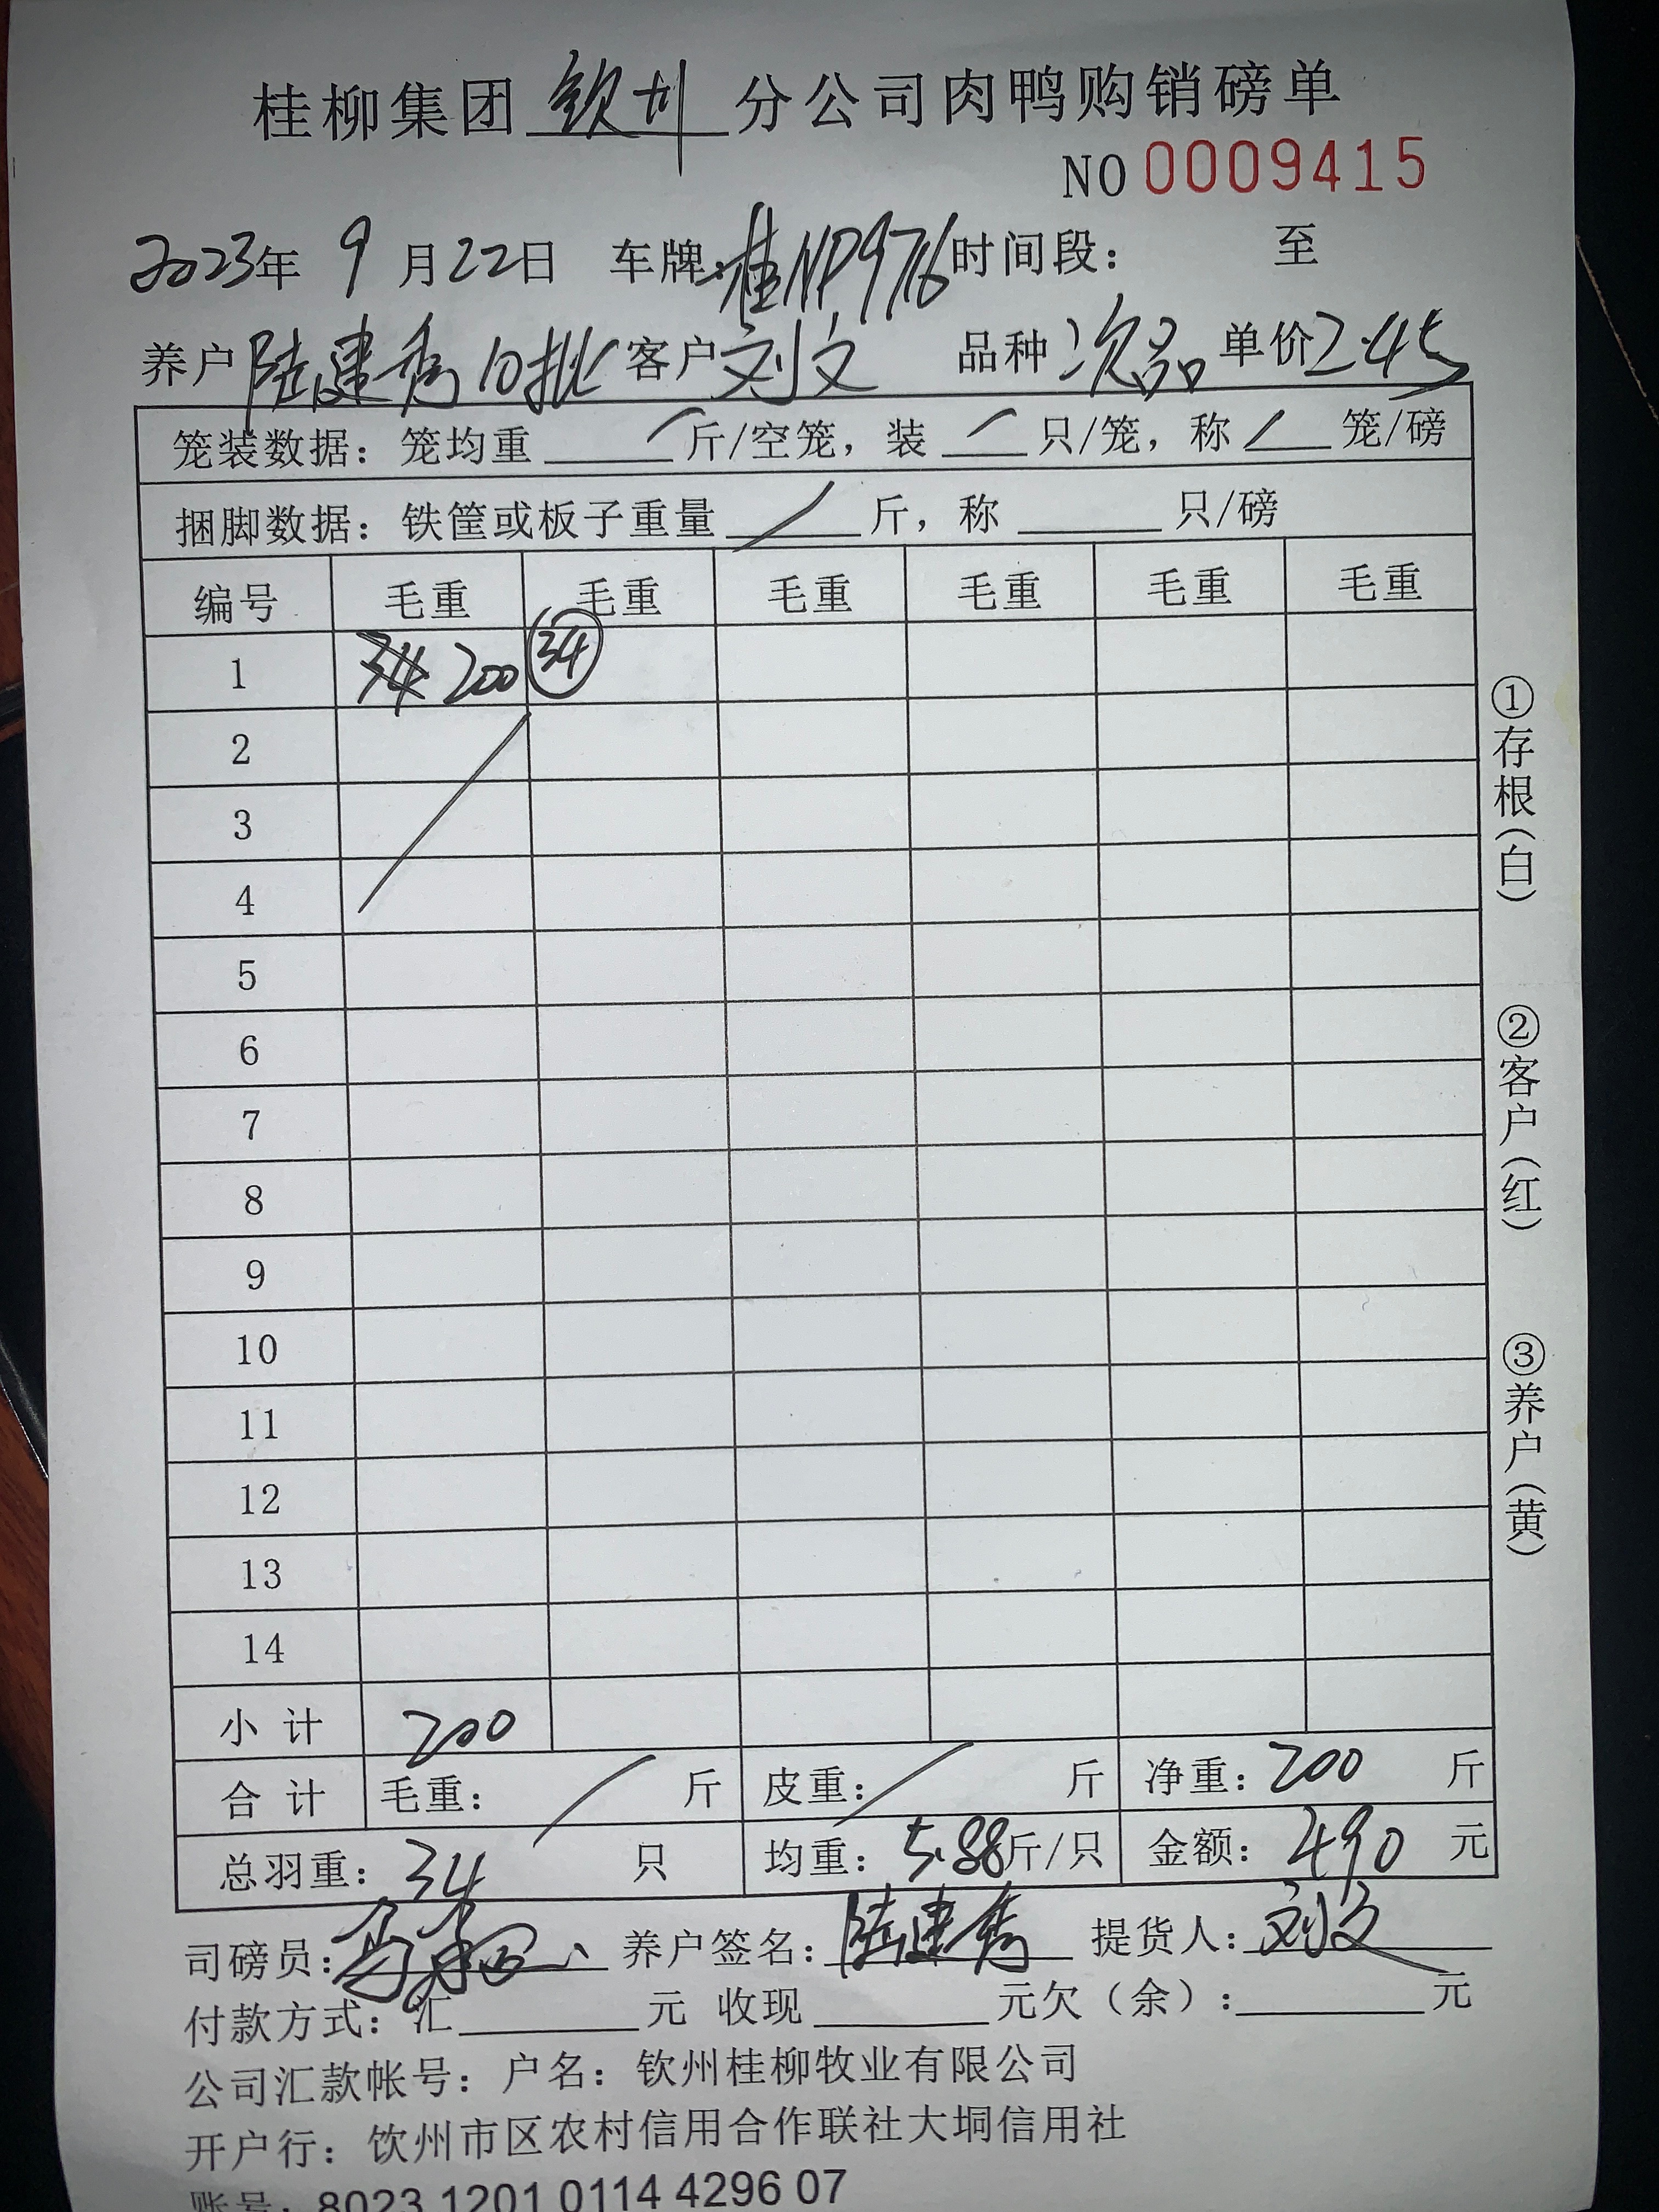 桂柳集团 钦州 分公司肉鸭购销磅单
NO 0009415
2023年 9 月 22 日 车牌：桂NP976 时间段： 至
养户 陆建秀 10批 客户 刘文 品种 次品 单价 2.45
笼装数据：笼均重 / 斤/空笼，装 / 只/笼，称 / 笼/磅
捆脚数据：铁筐或板子重量 / 斤，称 只/磅
编号 毛重 毛重 毛重 毛重 毛重 毛重
1 34 200 34
2
3
4
5
6
7
8
9
10
11
12
13
14
小 计 200
合 计 毛重： / 斤 皮重： / 斤 净重：200 斤
总羽重：34 只 均重：5.88斤/只 金额：490 元
司磅员： 养户签名：陆建秀 提货人：刘文
付款方式：汇 元 收现 元欠（余）： 元
公司汇款帐号：户名：钦州桂柳牧业有限公司
开户行：钦州市区农村信用合作联社大垌信用社
账号：8023 1201 0114 4296 07
①存根（白）
②客户（红）
③养户（黄）